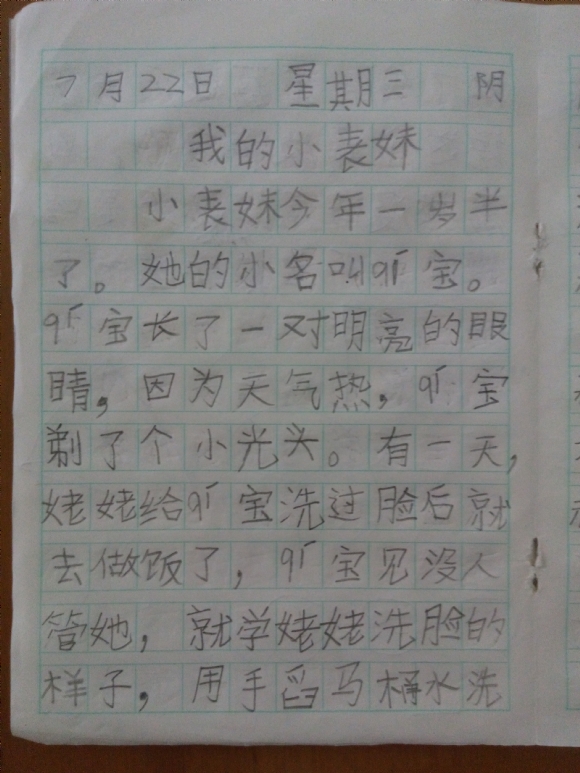 7月22日 星期三 阴
我的小表妹
小表妹今年一岁半
了。她的小名叫宝。
宝长了一对明亮的眼
睛，因为天气热，宝
剃了个小光头。有一天，
姥姥给宝洗过脸后就
去做饭了，宝见没人
管她，就学姥姥洗脸的
样子，用手舀马桶水洗